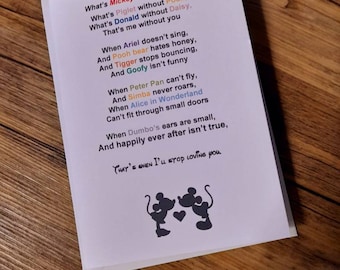 What's Mickey
What's Piglet without
What's Donald without Daisy,
That's me without you
When Ariel doesn't sing,
And Pooh bear hates honey,
And Tigger stops bouncing,
And Goofy isn't funny
When Peter Pan can't fly,
And Simba never roars,
When Alice in Wonderland
Can't fit through small doors
When Dumbo's ears are small,
And happily ever after isn't true,
That's when I'll stop loving you.